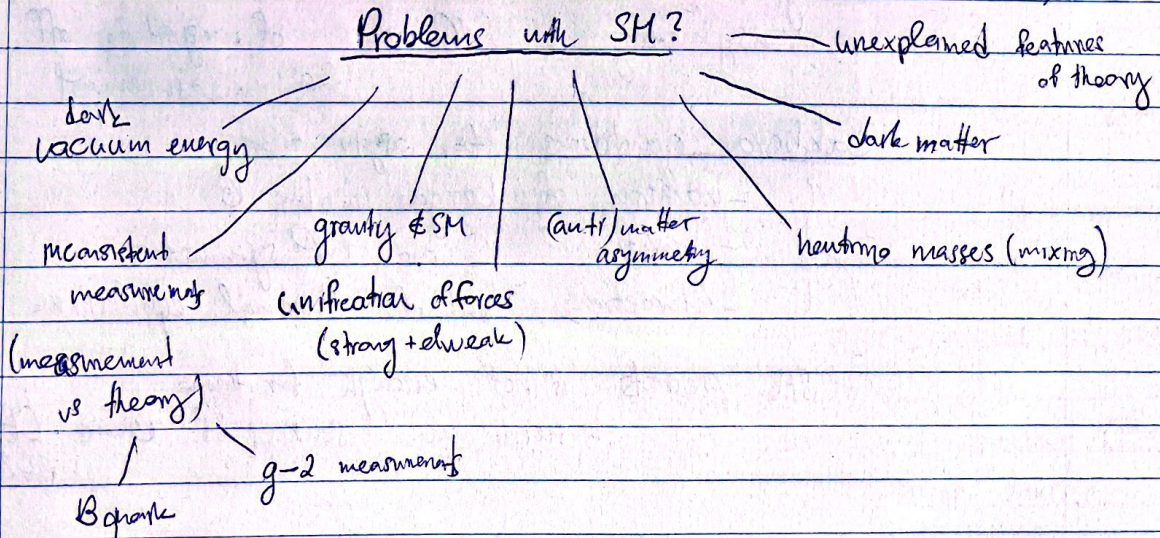 Problems with SM?
unexplained features
of theory
dark
vacuum energy
dark matter
inconsistent
measurements
gravity & SM
(anti)matter
asymmetry
neutrino masses (mixing)
unification of forces
(strong + elweak)
(measurement
vs theory)
g-2 measurements
B quark